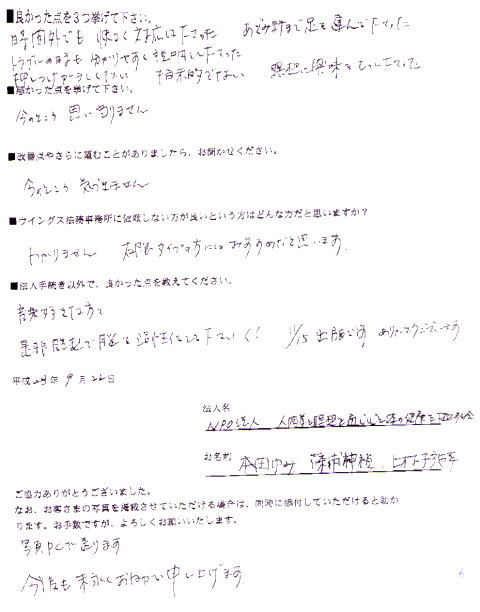 ■良かった点を3つ挙げて下さい。
時間外でも 快く対応して下さった あざみ野まで足を運んで下さった
トラブルの時も 分かりやすく説明して下さった
押しつけがましくない 指示的でない 瞑想に興味をもって下さった
■悪かった点を挙げて下さい。
今のところ 思い当りません
■改善点やさらに望むことがありましたら、お聞かせください。
今のところ 気づきません
■ウイングス法務事務所に依頼しない方が良いという方はどんな方だと思いますか？
わかりません タイプの方には おすすめだと思います
■法人手続き以外で、良かった点を教えてください。
是非瞑想で脳を活性化して下さい！ 11/15 出版です ありがとうございます
平成23年 9月 22日
法人名
NPO法人 人間学と瞑想を通じて心と体の健康を
お名前
本田ゆみ
ご協力ありがとうございました。
なお、お客さまの写真を掲載させていただける場合は、同時に添付していただけると助か
ります。お手数ですが、よろしくお願いいたします。
写真PCで送ります
今後も末永くお付き合い申し上げます